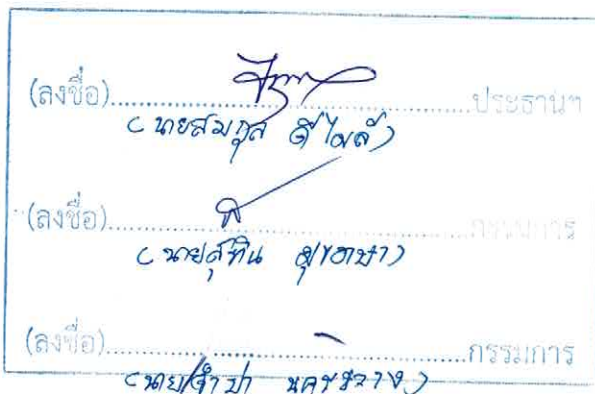 (ลงชื่อ)....................................ประธานฯ
(นายสมกุล ดีไพล)
(ลงชื่อ)....................................กรรมการ
(นายสุทิน
(ลงชื่อ)....................................กรรมการ
(นายจำปา นครขวาง)